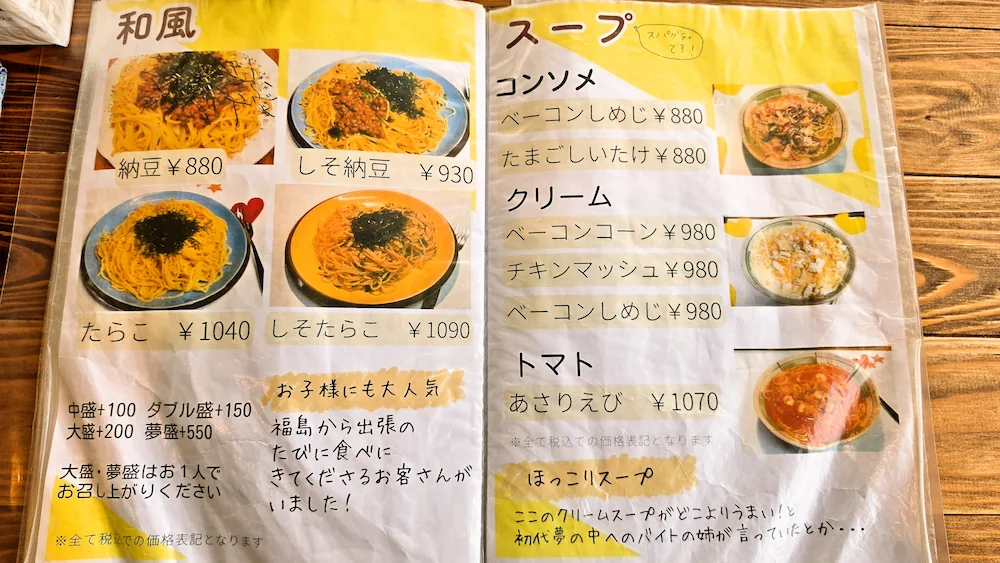 和風
納豆￥880
しそ納豆 ￥930
たらこ ￥1040
しそたらこ ￥1090
中盛+100 ダブル盛+150
大盛+200 夢盛+550
大盛・夢盛はお1人で
お召し上がりください
※全て税込での価格表記となります
お子様にも大人気
福島から出張の
たびに食べに
きてくださるお客さんが
いました！
スープ
スパゲティ
です！
コンソメ
ベーコンしめじ￥880
たまごしいたけ￥880
クリーム
ベーコンコーン￥980
チキンマッシュ￥980
ベーコンしめじ￥980
トマト
あさりえび ￥1070
※全て税込での価格表記となります
ほっこりスープ
ここのクリームスープがどこよりうまい！と
初代夢の中へのバイトの姉が言っていたとか・・・